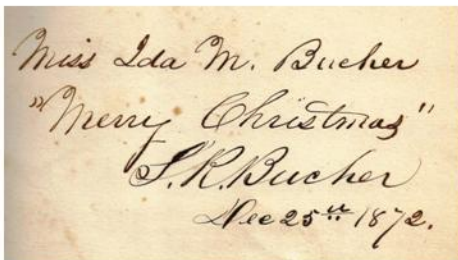 Miss Ida M. Bucher
"Merry Christmas"
S.R. Bucher
Dec 25th 1872.